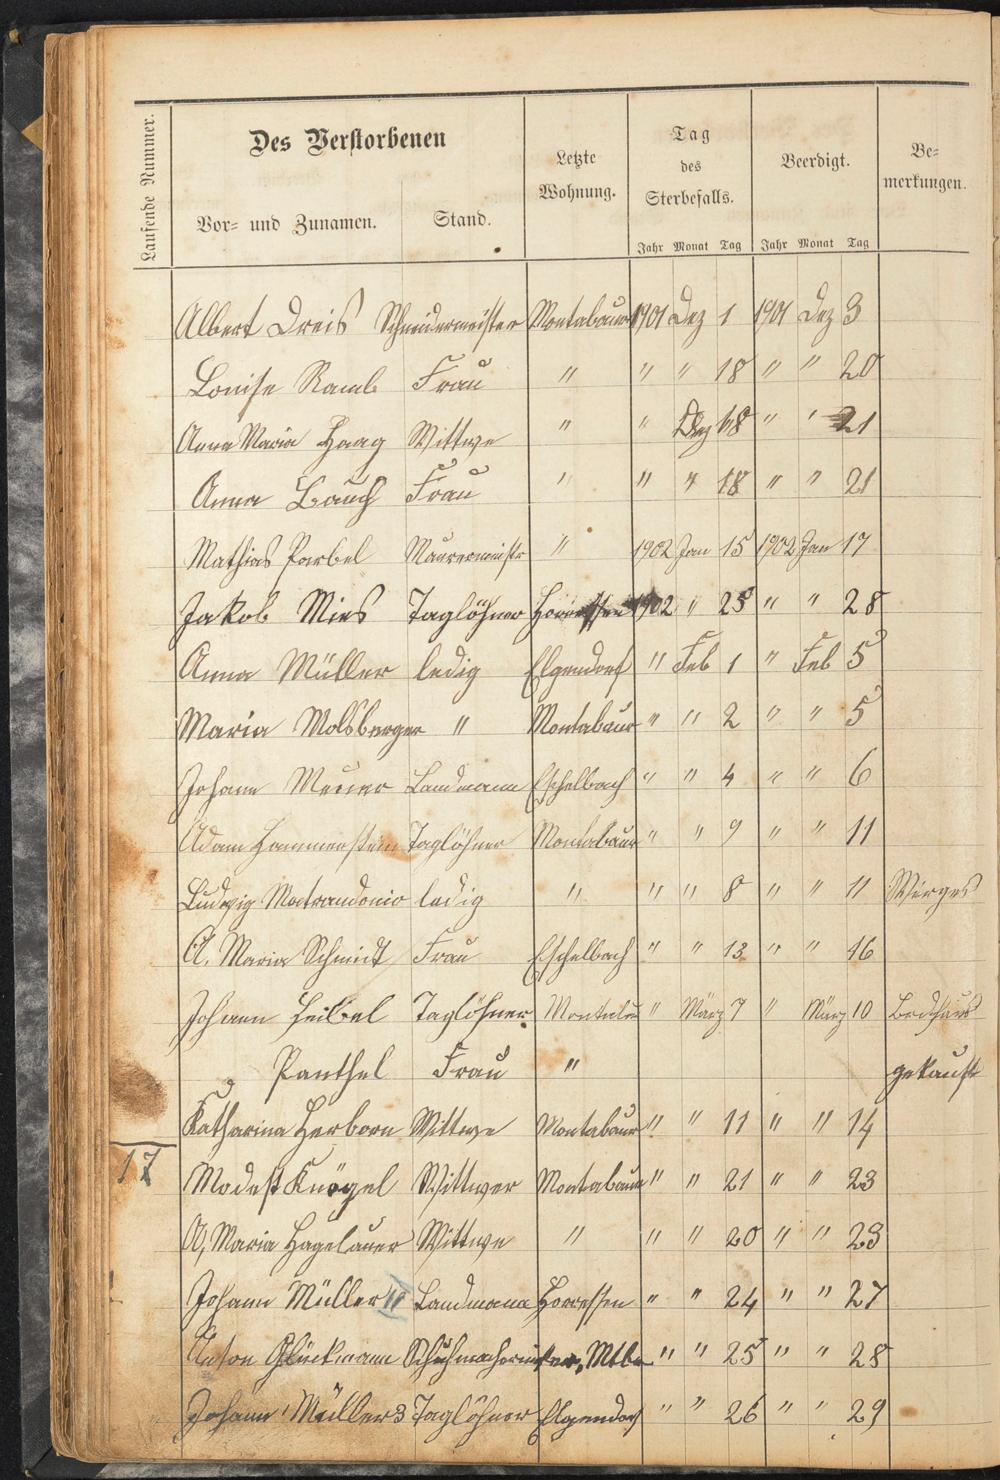 Laufende Nummer.
Des Verstorbenen
Vor- und Zunamen. Stand.
Letzte Wohnung.
Tag des Sterbefalls.
Beerdigt.
Be= merkungen.
Jahr Monat Tag Jahr Monat Tag
Albert Dreis Schneidermeister Montabaur 1901 Dez 1 1901 Dez 3
Louise Ramb Frau " " " 18 " " 20
Anna Maria Haag Wittwe " " Dez 18 " " 21
Anna Bauch Frau " " " 18 " " 21
Mathias Porbel Maurermeistr " 1902 Jan 15 1902 Jan 17
Jakob Mies Taglöhner Horressen 1902 " 25 " " 28
Anna Müller ledig Elgendorf " Feb 1 " Feb 5
Maria Molsberger " Montabaur " " 2 " " 5
Johann Meurer Landmann Eschelbach " " 4 " " 6
Adam Hammerstein Taglöhner Montabaur " " 9 " " 11
Ludwig ledig " " " 8 " " 11 Wirges
A. Maria Schmidt Frau Eschelbach " " 13 " " 16
Johann Heibel Taglöhner " März 7 " März 10
Panthel Frau " gekauft
Katharina Herborn Wittwe Montabaur " " 11 " " 14
17 Modest Knögel Wittwer Montabaur " " 21 " " 23
A, Maria Hagelauer Wittwe " " " 20 " " 23
Johann Müller II Landmann Horressen " " 24 " " 27
Anton Glückmann Schuhmachermeister, Mtbr " " 25 " " 28
Johann Müller 3 Taglöhner Elgendorf " " 26 " " 29